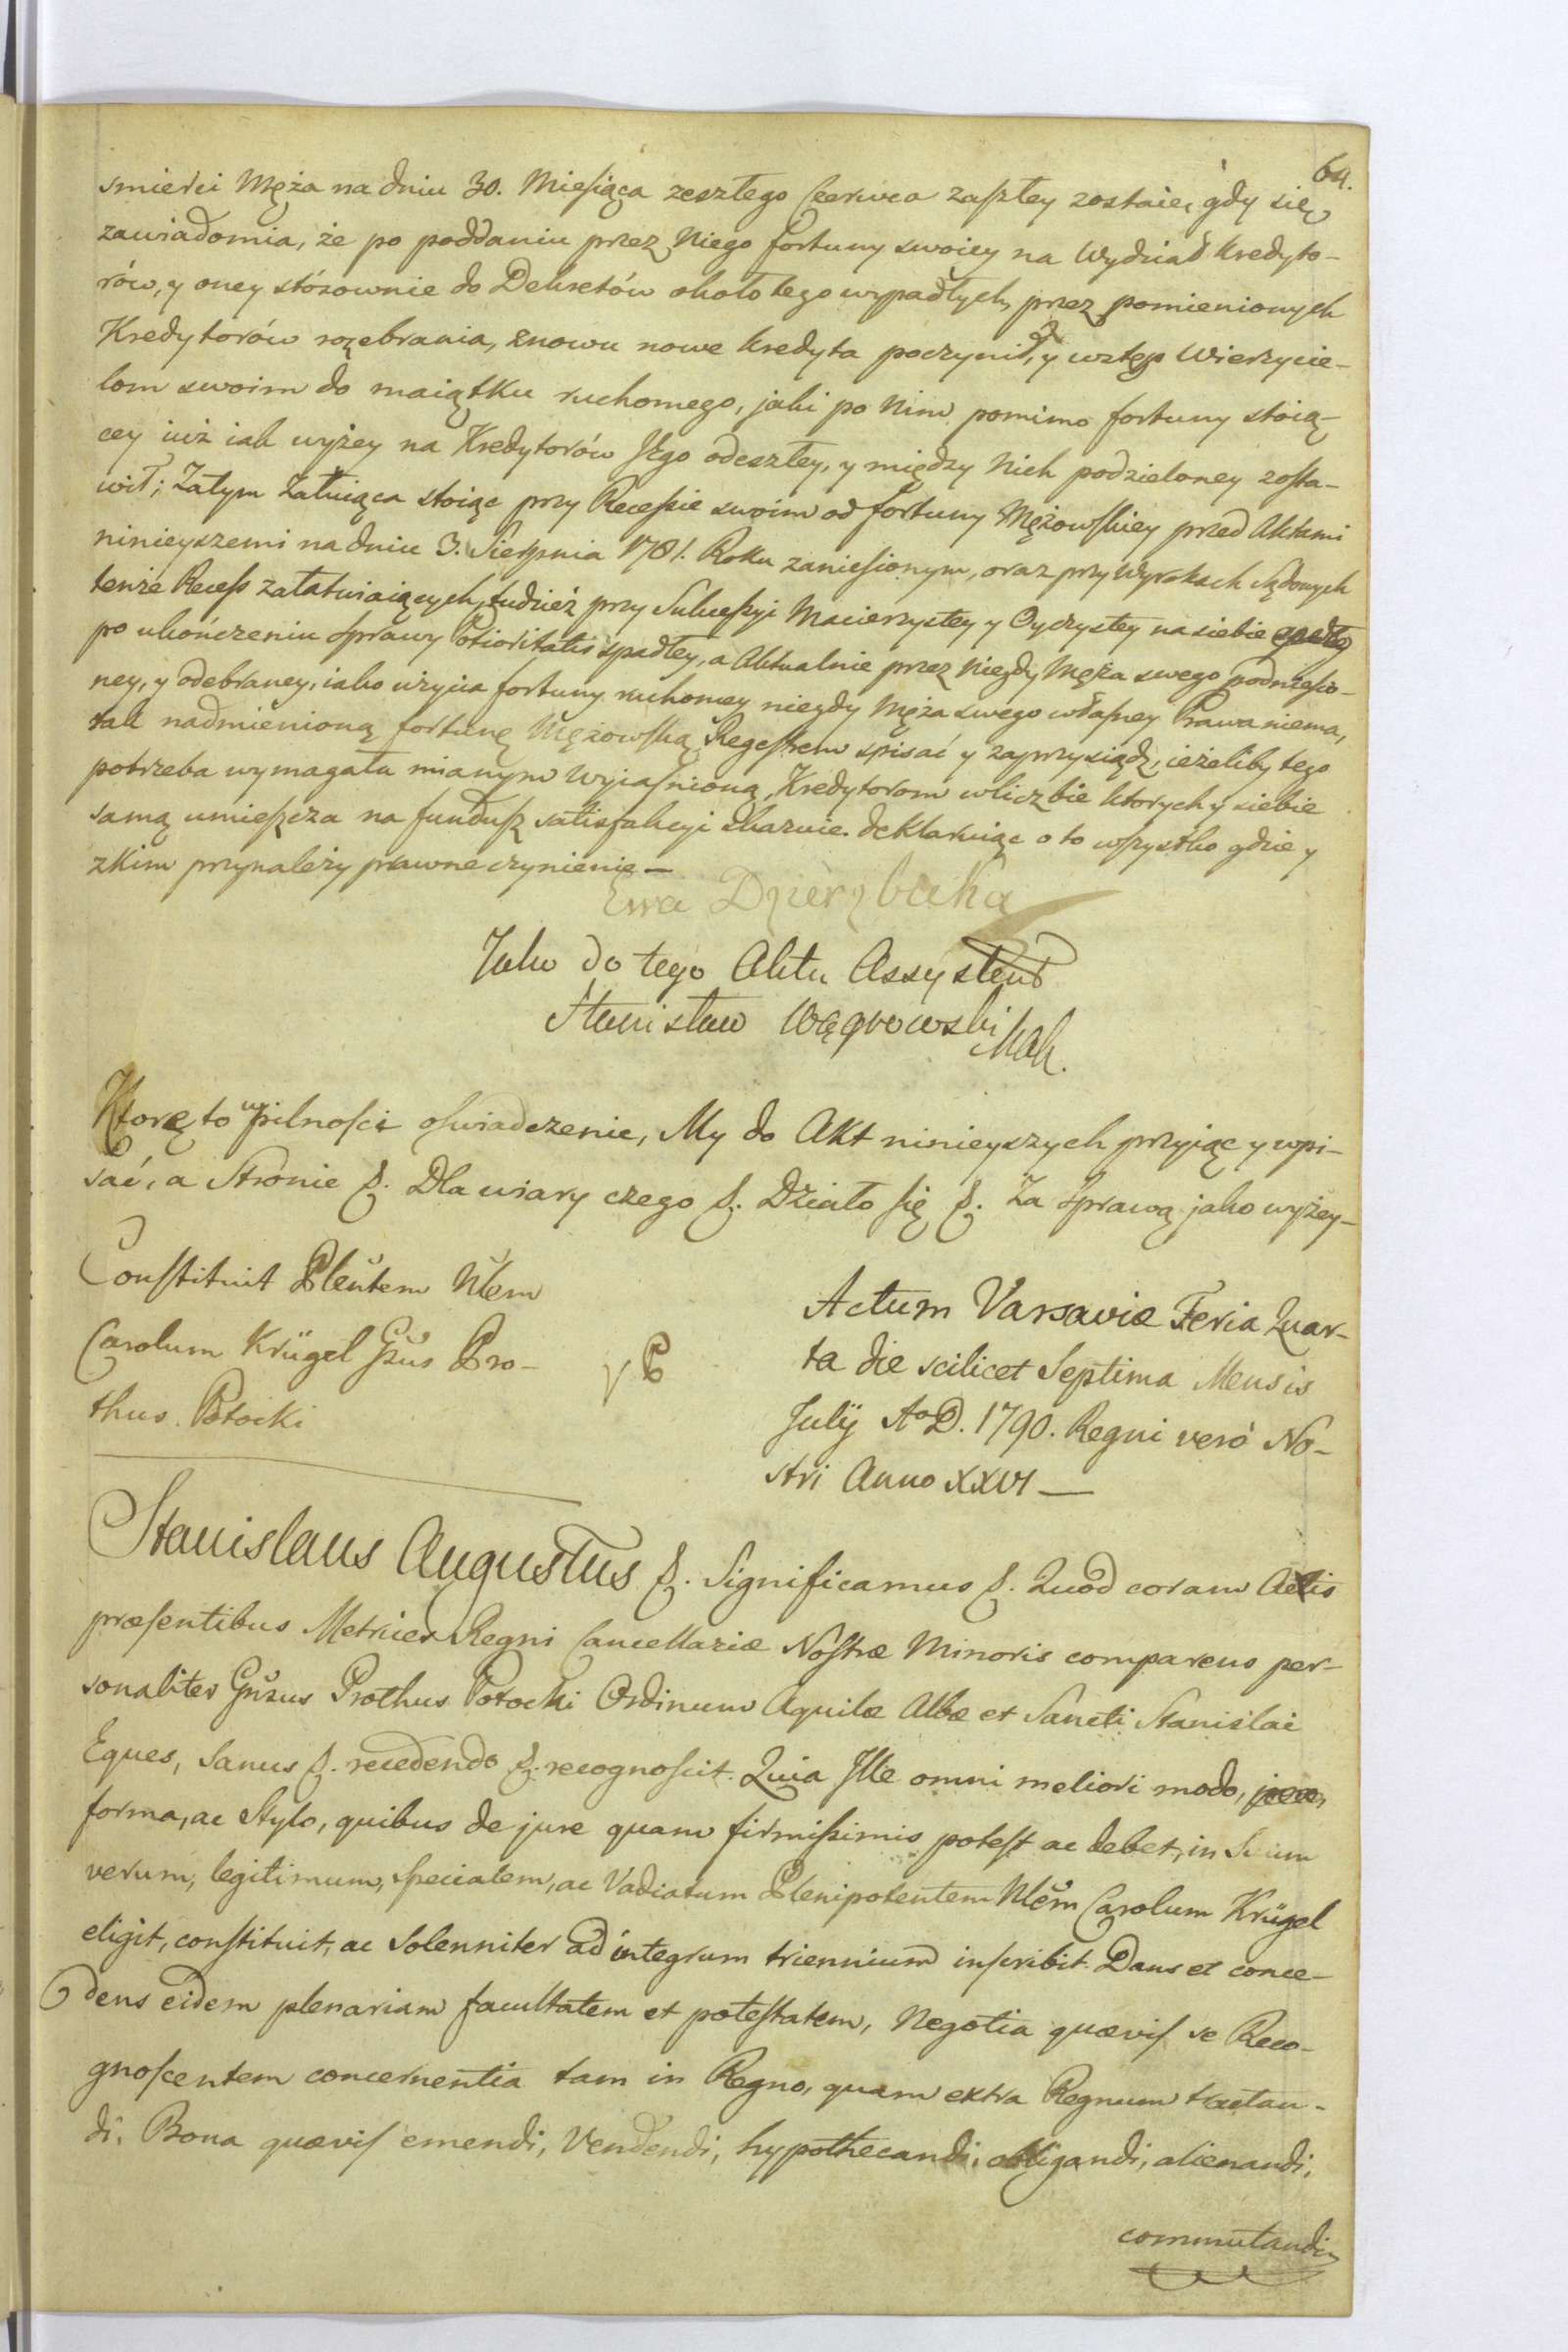 64.
smierci Męża na dniu 30. Miesiąca zeszłego Czerwca zaszłey zostaie, gdy się
zawiadomia, że po poddaniu przez Niego fortuny swoiey na Wydział Kredyto-
rów, y oney stósownie do Dekretów około tego wypadłych, przez pomienionych
Kredytorów rozebrania, znowu nowe kredyta poczynił, y wstęp Wierzycie-
lom swoim do maiątku ruchomego, jaki po Nim pomimo fortuny stoią-
cey iuż iak wyżey na Kredytorów Jego odeszłey, y między Nich podzieloney zosta-
wił; Zatym Załuiąca stoiąc przy Recessie swoim od fortuny Mężowskiey przed Aktami
ninieyszemi na dniu 3. Sierpnia 1781. Roku zaniesionym, oraz przy Wyrokach Sądowych
tenże Recess załatwiaiących, tudzież przy Sukcessyi Macierzystey y Oyczystey na siebie
po ukończeniu sprawy Potioritatis spadłey, a Aktualnie przez Niegdy Męża swego podniesio-
ney, y odebraney, iako użycia fortuny ruchomey niegdy Męża swego własney Prawa niema,
tak nadmienioną fortunę Mężowską Regestrem spisać y zaprzysiądz, ieżeliby tego
potrzeba wymagała mianym wyiasnioną, Kredytorom w liczbie ktorych y siebie
samą umieszcza na fundusz satisfakcyi skazuie. deklaruiąc o to wszystko gdzie y
z kim przynależy prawne czynienie —
Ewa Dzierzbicka
Jako do tego Aktu Assystent
Stanisław Wągrowski Mak.
Ktorę to w pilnosci oswiadczenie, My do Akt ninieyszych przyiąc y wpi-
sać, a Stronie &. Dla wiary czego &. Działo się &. Za Sprawą jako wyżey —
Constituit Plentem Nlem
Carolum Krügel Gsus Pro-
thus Potocki
Actum Varsaviæ Feria Quar-
ta die scilicet Septima Mensis
Julÿ Aº D. 1790. Regni verò No-
stri Anno XXVI —
Stanislaus Augustus &. Significamus &. Quod coram Actis
præsentibus Metrices Regni Cancellariæ Nostræ Minoris comparens per-
sonaliter Gnsus Prothus Potocki Ordinum Aquilæ Albæ et Sancti Stanislai
Eques, Sanus &. recedendo &. recognoscit. Quia Ille omni meliori modo,
forma, ac Stylo, quibus de jure quam firmissimis potest ac debet, in Suum
verum, legitimum, specialem, ac Vadiatum Plenipotentem Nlem Carolum Krügel
eligit, constituit, ac Solenniter ad integrum triennium inscribit. Dans et conce-
dens eidem plenariam facultatem et potestatem, Negotia quævis se Reco-
gnoscentem concernentia tam in Regno, quam extra Regnum tractan-
di. Bona quævis emendi, Vendendi, hypothecandi, obligandi, alienandi,
commutandi